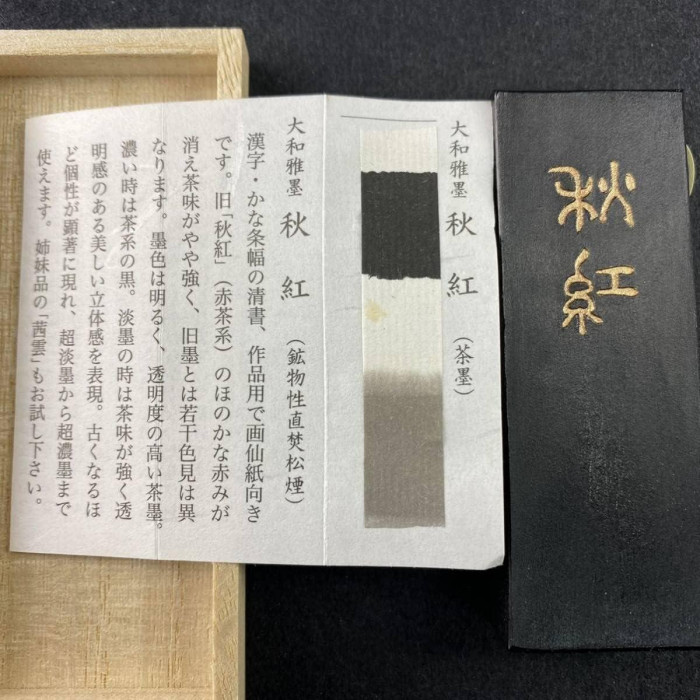 秋紅
大和雅墨 秋紅 (茶墨)
大和雅墨 秋紅 (鉱物性直焚松煙)
漢字・かな条幅の清書、作品用で画仙紙向き
です。旧「秋紅」(赤茶系)のほのかな赤みが
消え茶味がやや強く、旧墨とは若干色見は異
なります。墨色は明るく、透明度の高い茶墨。
濃い時は茶系の黒。淡墨の時は茶味が強く透
明感のある美しい立体感を表現。古くなるほ
ど個性が顕著に現れ、超淡墨から超濃墨まで
使えます。姉妹品の「茜雲」もお試し下さい。